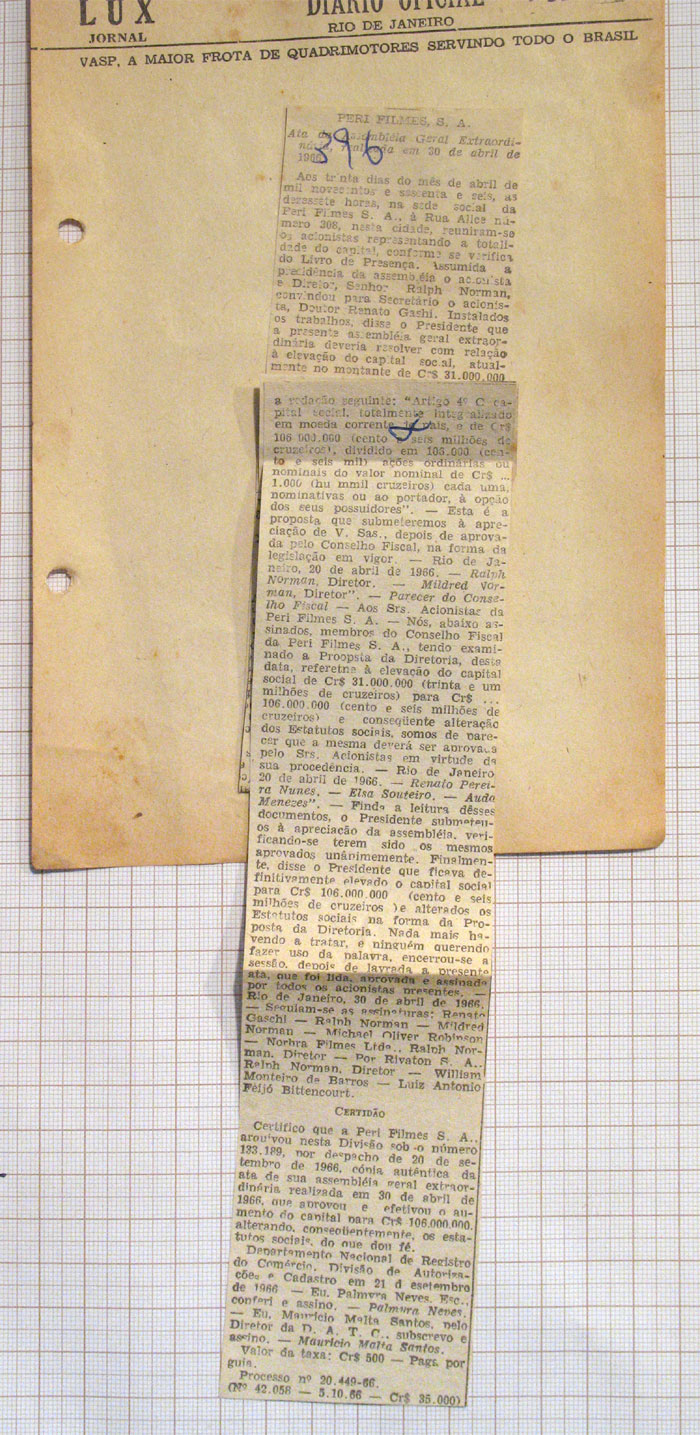 LUX
JORNAL
DIARIO OFICIAL
RIO DE JANEIRO
VASP, A MAIOR FROTA DE QUADRIMOTORES SERVINDO TODO O BRASIL
PERI FILMES, S. A.
Ata da Assembléia Geral Extraordi-
nária, realizada em 30 de abril de
1966
396
Aos trinta dias do mês de abril de
mil novecentos e sessenta e seis, as
dezessete horas, na sede social da
Peri Filmes S. A., à Rua Alice nú-
mero 308, nesta cidade, reuniram-se
os acionistas representando a totali-
dade do capital, conforme se verifica
do Livro de Presença. Assumida a
presidência da assembléia o acionista
e Diretor, Senhor Ralph Norman,
convidou para Secretário o acionis-
ta, Doutor Renato Gashi. Instalados
os trabalhos, disse o Presidente que
a presente assembléia geral extraor-
dinária deveria resolver com relação
à elevação do capital social, atual-
mente no montante de Cr$ 31.000.000
a redação seguinte: "Artigo 4º C ca-
pital social, totalmente integralizado
em moeda corrente do país, e de Cr$
106 000.000 (cento e seis milhões de
cruzeiros), dividido em 106.000 (cen-
to e seis mil) ações ordinárias ou
nominais do valor nominal de Cr$ ...
1.000 (hu mmil cruzeiros) cada uma,
nominativas ou ao portador, à opção
dos seus possuidores". — Esta é a
proposta que submeteremos à apre-
ciação de V. Sas., depois de aprova-
da pelo Conselho Fiscal, na forma da
legislação em vigor. — Rio de Ja-
neiro, 20 de abril de 1966. — Ralph
Norman, Diretor. — Mildred Nor-
man, Diretor". — Parecer do Conse-
lho Fiscal — Aos Srs. Acionistas da
Peri Filmes S. A. — Nós, abaixo as-
sinados, membros do Conselho Fiscal
da Peri Filmes S. A., tendo exami-
nado a Proopsta da Diretoria, desta
data, referetne à elevação do capital
social de Cr$ 31.000.000 (trinta e um
milhões de cruzeiros) para Cr$ ...
106.000.000 (cento e seis milhões de
cruzeiros) e conseqüente alteração
dos Estatutos sociais, somos de pare-
cer que a mesma deverá ser aprovada
pelo Srs. Acionistas em virtude da
sua procedência. — Rio de Janeiro
20 de abril de 1966. — Renato Perei-
ra Nunes. — Elsa Souteiro. — Auda
Menezes". — Finda a leitura dêsses
documentos, o Presidente submeteu-
os à apreciação da assembléia, veri-
ficando-se terem sido os mesmos
aprovados unânimemente. Finalmen-
te, disse o Presidente que ficava de-
finitivamente elevado o capital social
para Cr$ 106.000.000 (cento e seis
milhões de cruzeiros )e alterados os
Estatutos sociais na forma da Pro-
posta da Diretoria. Nada mais ha-
vendo a tratar, e ninguém querendo
fazer uso da palavra, encerrou-se a
sessão, depois de lavrada a presente
ata, que foi lida, aprovada e assinada
por todos os acionistas presentes. —
Rio de Janeiro, 30 de abril de 1966.
— Seguiam-se as assinaturas: Renato
Gaschi — Ralph Norman — Mildred
Norman — Michael Oliver Robinson
— Norbra Filmes Ltda., Ralph Nor-
man, Diretor — Por Rivaton S. A.,
Ralph Norman, Diretor — William
Monteiro de Barros — Luiz Antonio
Feijó Bittencourt.
CERTIDÃO
Certifico que a Peri Filmes S. A.,
arquivou nesta Divisão sob o número
133.189, por despacho de 20 de se-
tembro de 1966, cópia autêntica da
ata de sua assembléia geral extraor-
dinária realizada em 30 de abril de
1966, que aprovou e efetivou o au-
mento do capital para Cr$ 106.000.000,
alterando, conseqüentemente, os esta-
tutos sociais, do que dou fé.
Departamento Nacional de Registro
do Comércio. Divisão de Autoriza-
ções e Cadastro em 21 d esetembro
de 1966 — Eu, Palmyra Neves, Esc.,
conferi e assino. — Palmyra Neves.
— Eu, Mauricio Malta Santos, pelo
Diretor da D. A. T. C., subscrevo e
assino. — Mauricio Malta Santos.
Valor da taxa: Cr$ 500 — Paga por
guia.
Processo nº 20.449-66.
(Nº 42.058 — 5.10.66 — Cr$ 35.000)